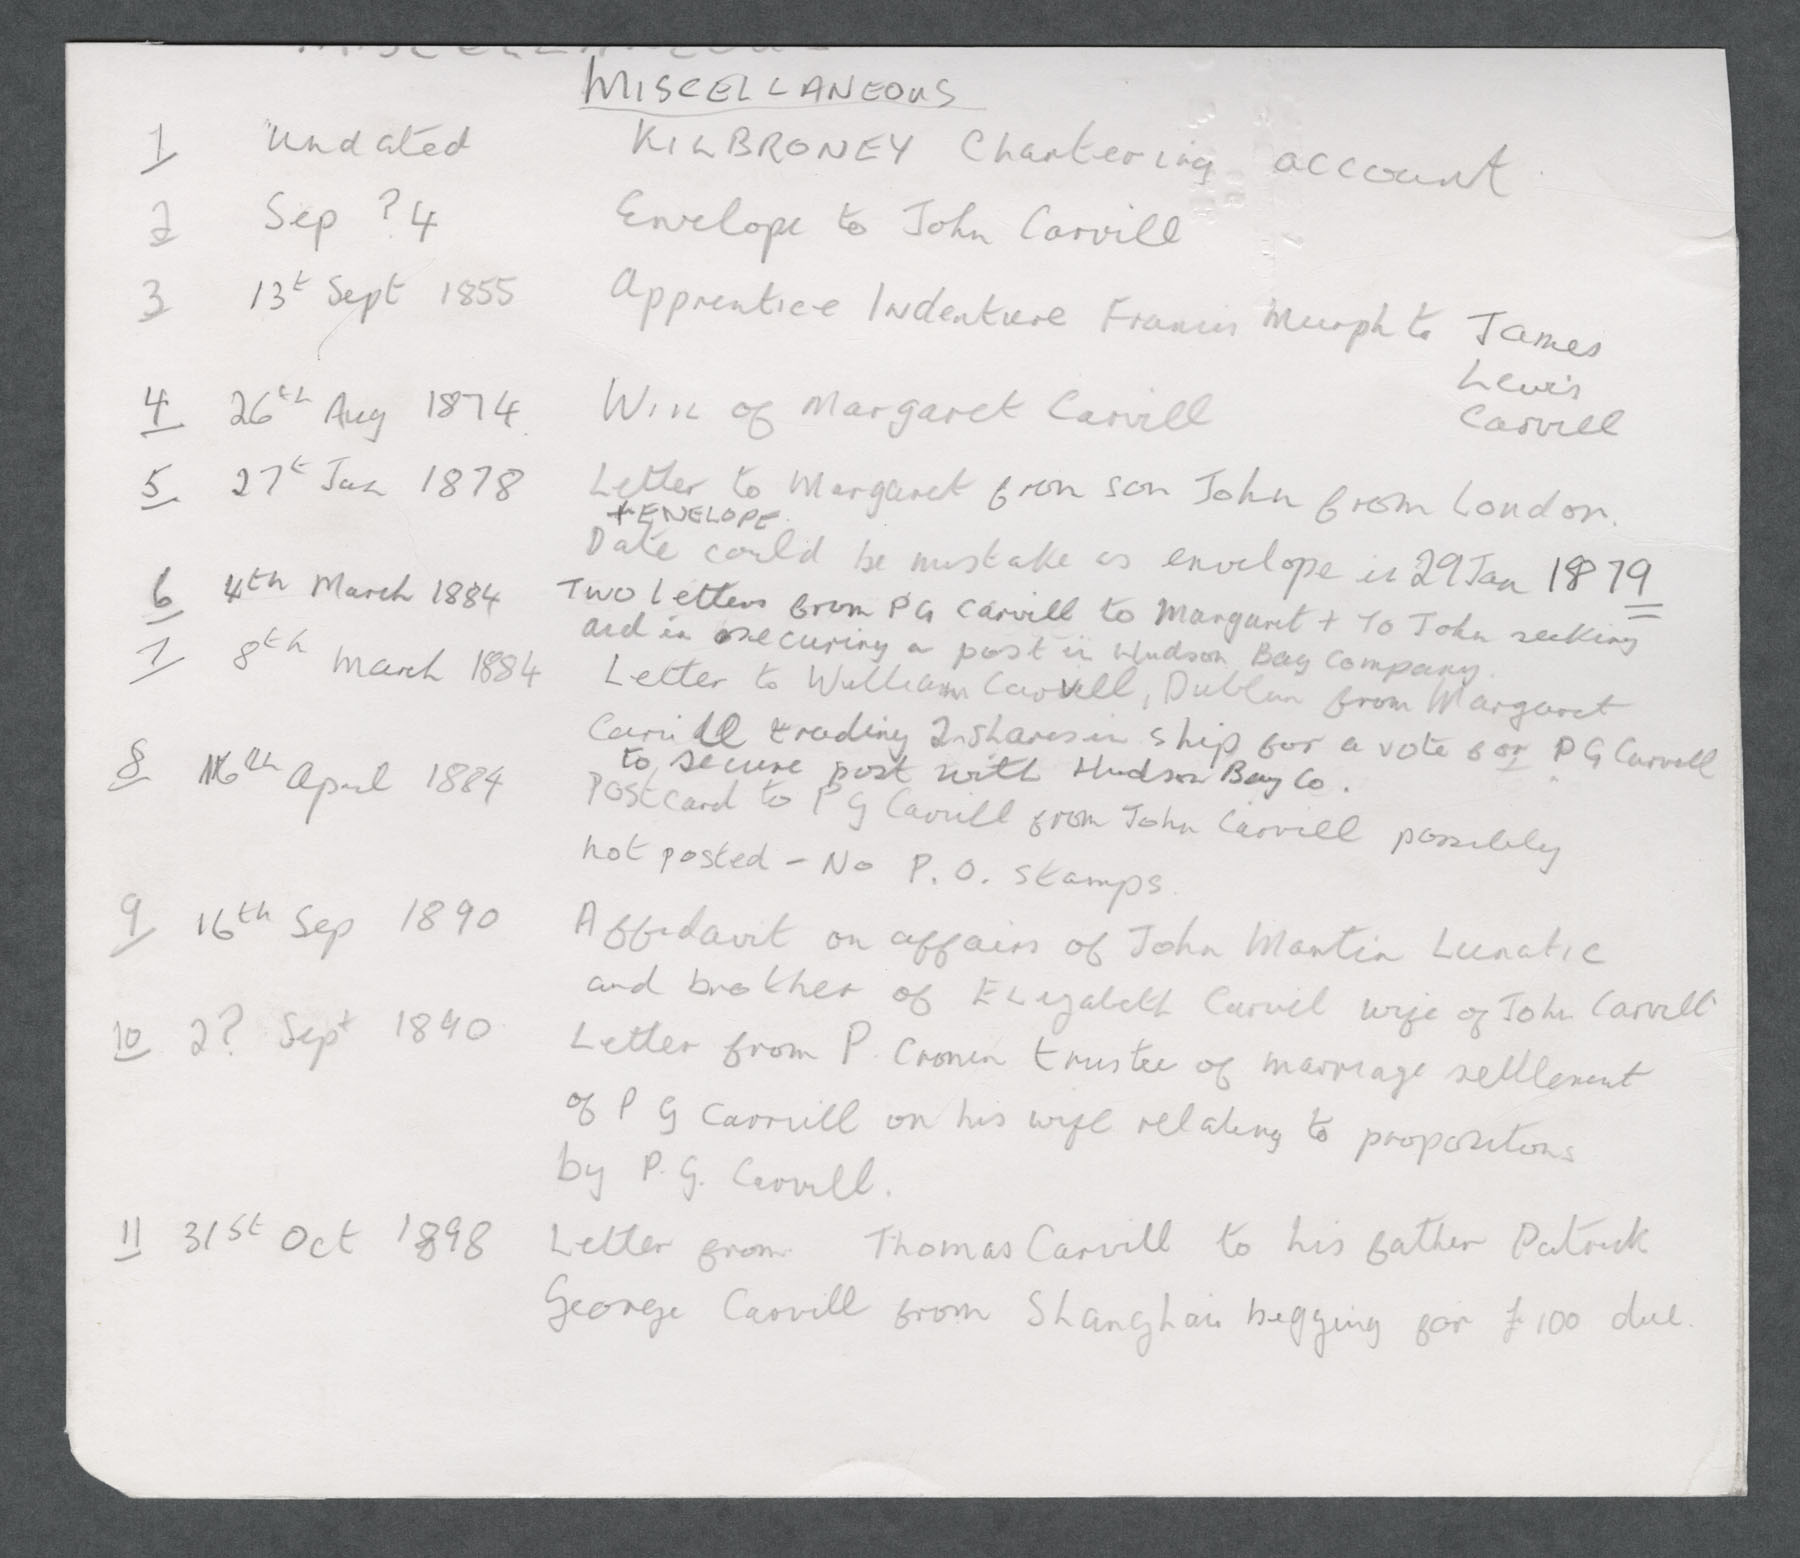 MISCELLANEOUS
1 Undated KILBRONEY Chartering account
2 Sep ? 4 Envelope to John Carvill
3 13t Sept 1855 Apprentice Indenture Francis Murph to James
Lewis
Carvill
4 26th Aug 1874 Will of Margaret Carvill
5 27t Jan 1878 Letter to Margaret from son John from London.
+ ENELOPE.
Date could be mistake as envelope is 29 Jan 1879
6 4th March 1884 Two letters from PG Carvill to Margaret + To John seeking
aid in securing a post in Hudson Bay Company.
7 8th March 1884 Letter to William Carvill, Dublin from Margaret
Carvill trading 2 shares in ship for a vote for P G Carvill
to secure post with Hudson Bay Co.
8 16th April 1884 Postcard to P G Carvill from John Carvill possibly
not posted - No P.O. stamps.
9 16th Sep 1890 Affidavit on affairs of John Martin Lunatic
and brother of Elizabeth Carvil wife of John Carvill
10 2? Sept 1890 Letter from P. Cronin trustee of marriage settlement
of P G Carvill on his wife relating to propositions
by P. G. Carvill.
11 31st Oct 1898 Letter from Thomas Carvill to his father Patrick
George Carvill from Shanghai begging for £100 due.